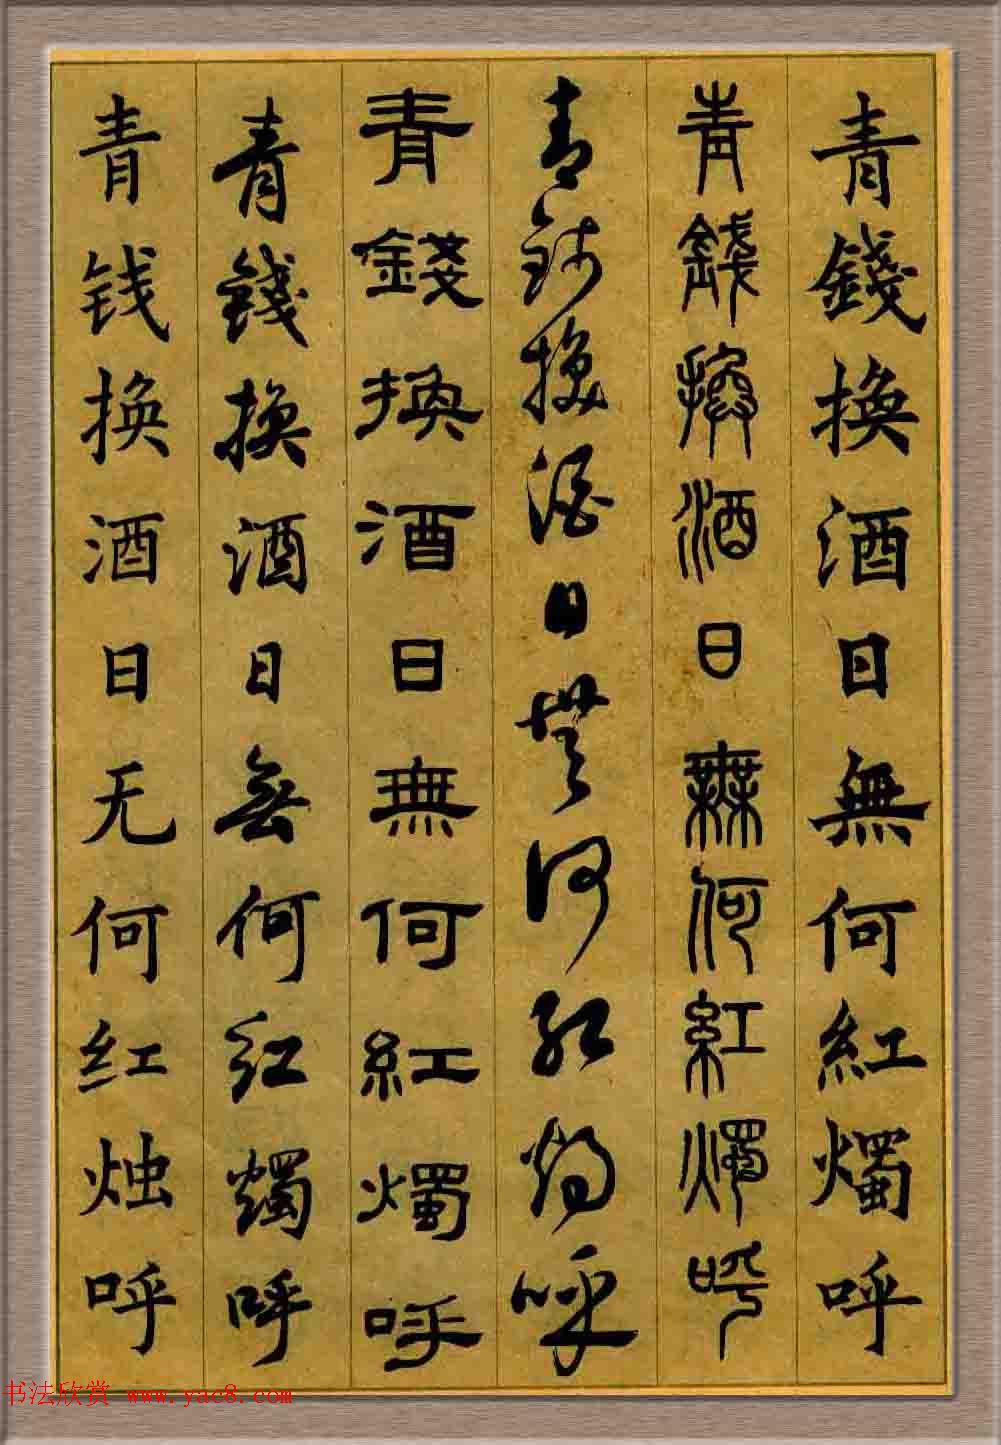 青錢換酒日無何紅燭呼
青錢換酒日無何紅燭呼
青錢換酒日無何紅燭呼
青錢換酒日無何紅燭呼
青錢換酒日無何紅燭呼
青钱换酒日无何红烛呼
书法欣赏 www.yac8.com